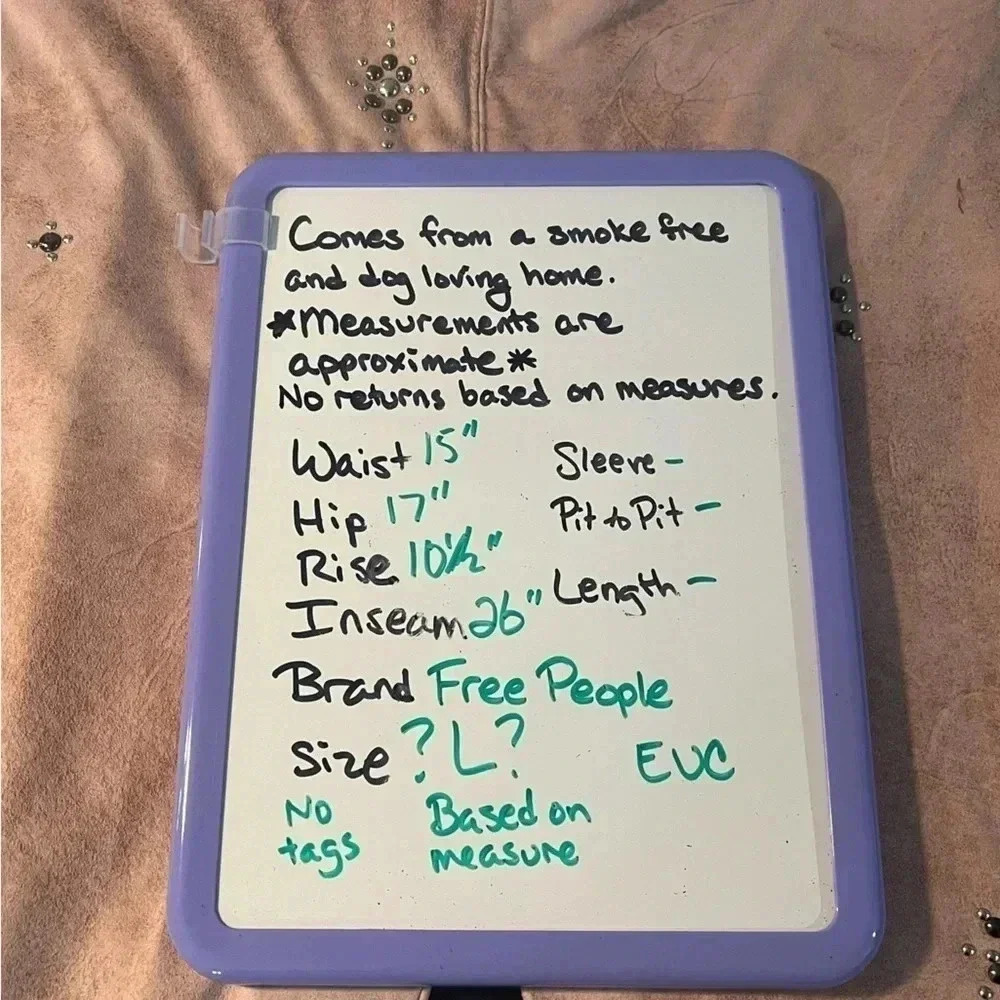 Comes from a smoke free
and dog loving home.
*Measurements are
approximate*
No returns based on measures.
Waist 15" Sleeve -
Hip 17" Pit to Pit -
Rise 10 1/2"
Inseam 26" Length -
Brand Free People
Size ?L? EUC
No tags Based on measure